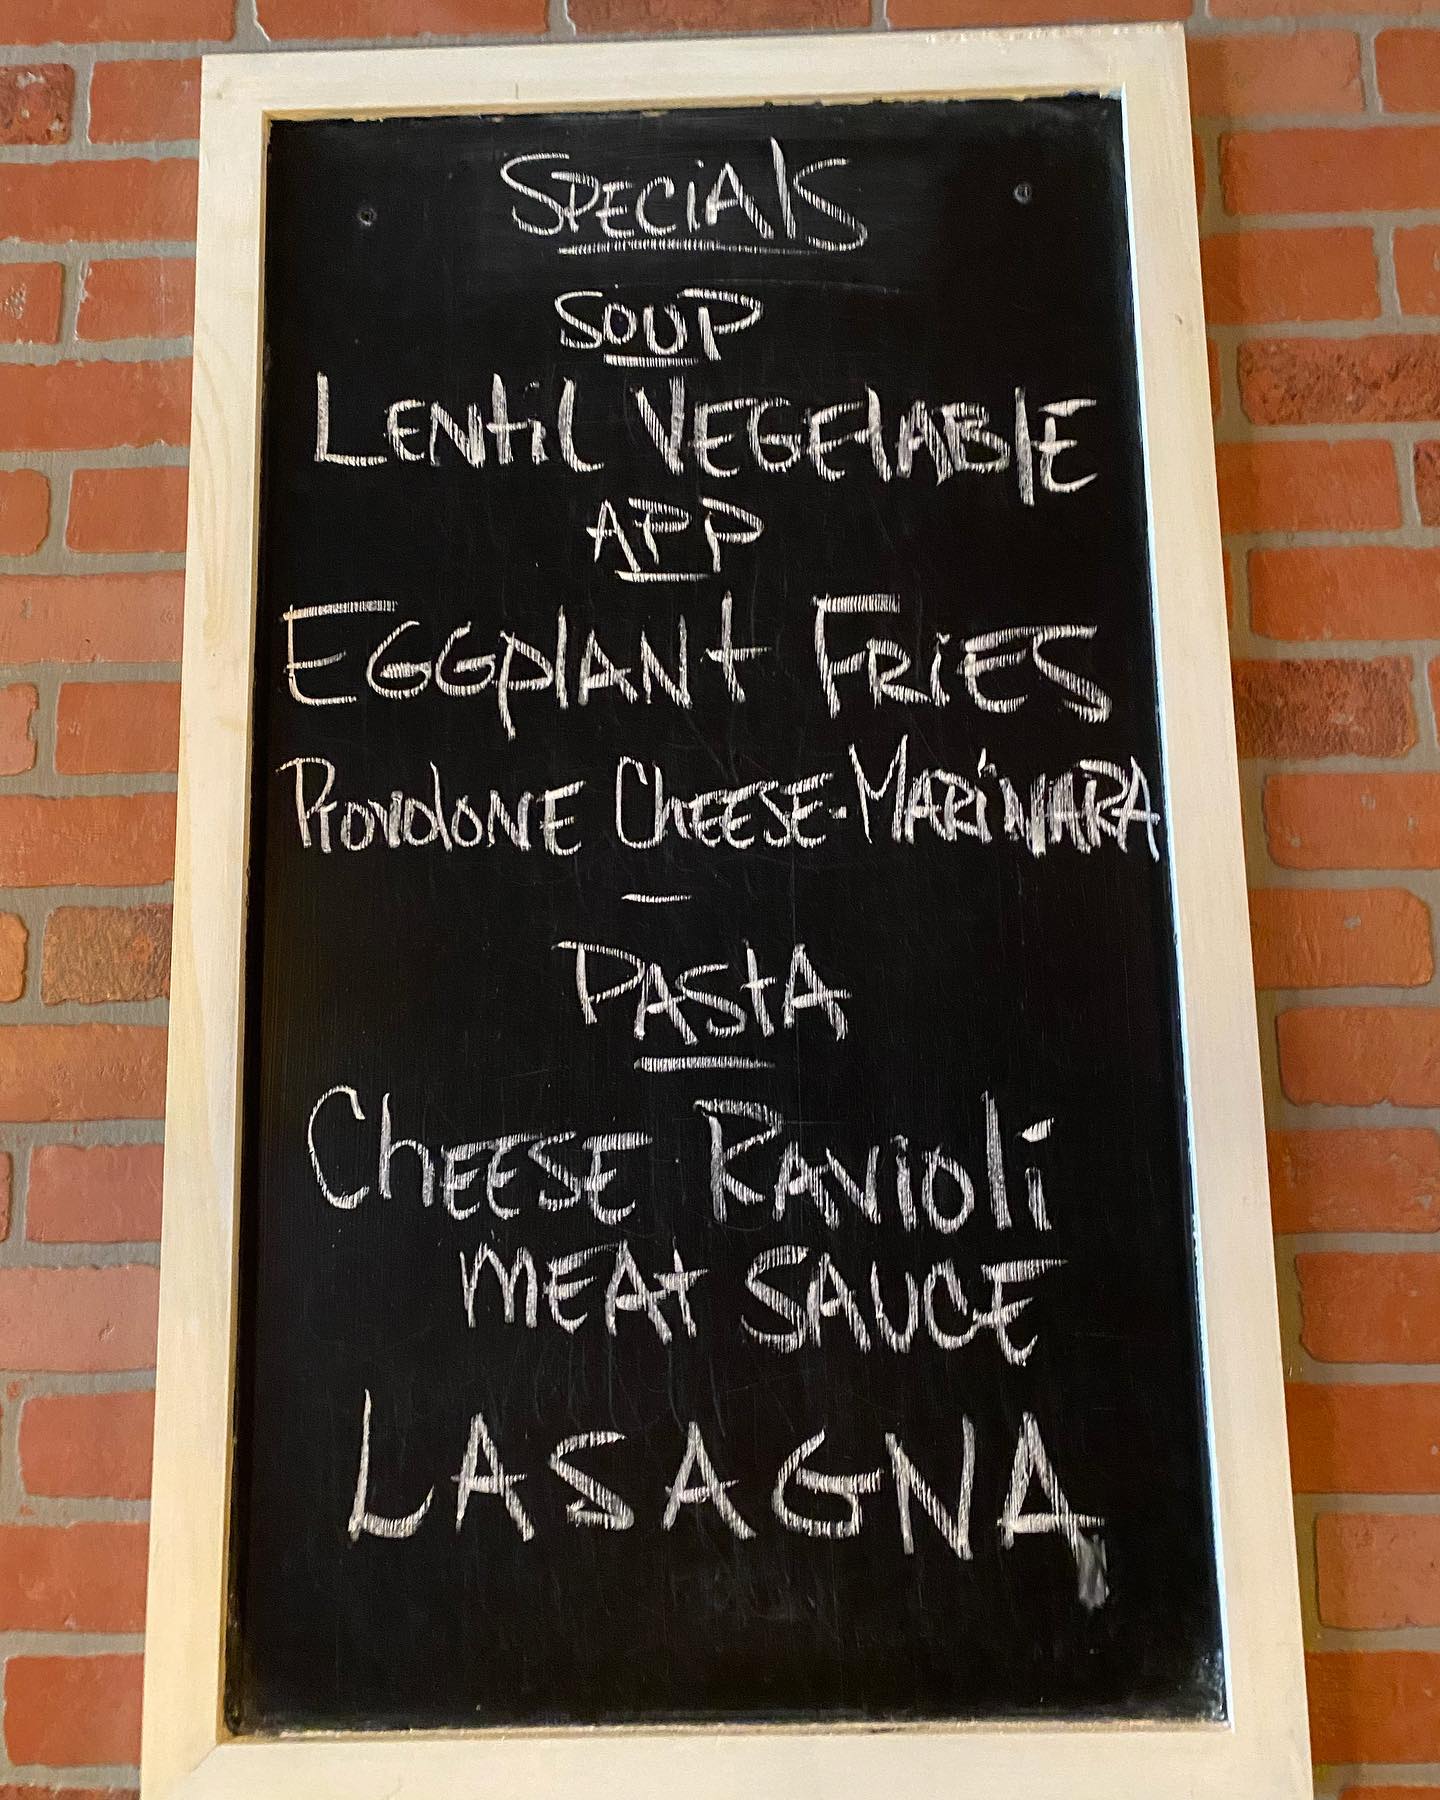 SPECiAlS
SOUP
LENtil VEGEtABlE
APP
EGGplANt FRiES
ProvoloNE ChEESE-MARiNARA
PAStA
ChEESE RAVioli
mEAt SAUCE
LASAGNA